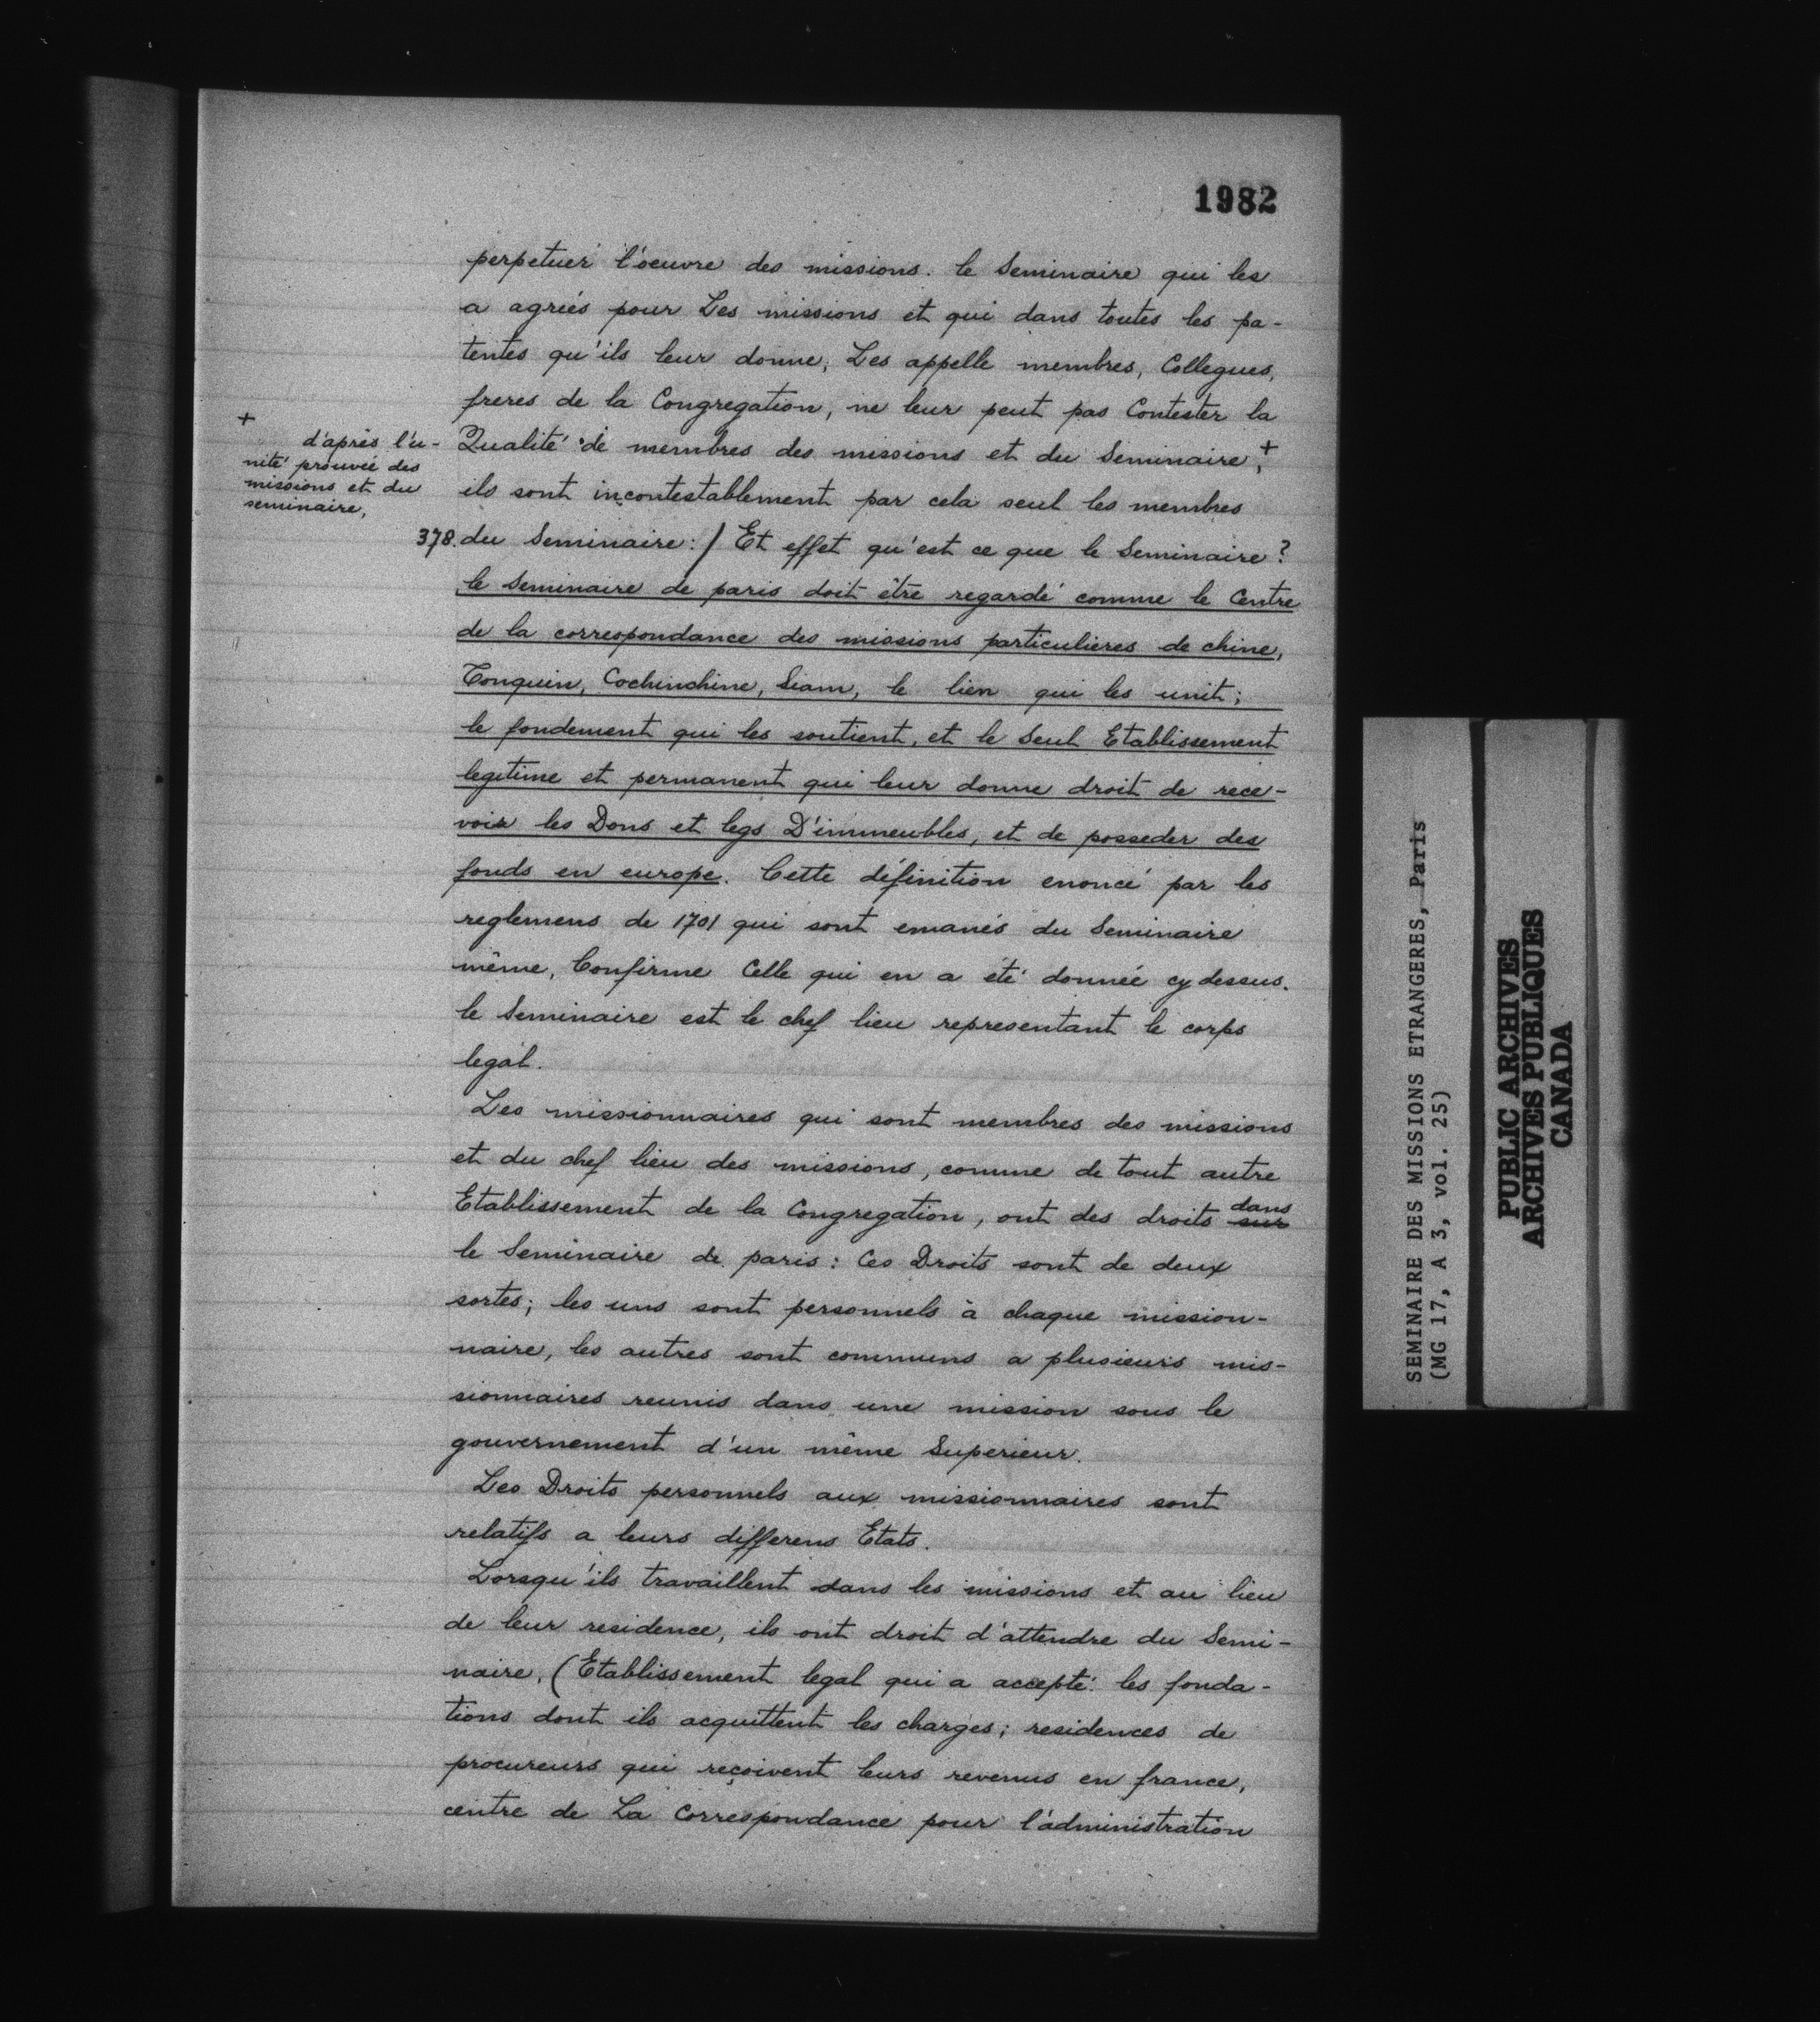 1982
perpetuer l'oeuvre des missions. le Seminaire qui les
a agréés pour Les missions et qui dans toutes les pa-
tentes qu'ils leur donne, Les appelle membres, Collegues,
freres de la Congregation, ne leur peut pas Contester la
Qualité de membres des missions et du Seminaire, +
+
d'après l'u-
nité prouvée des
missions et du
seminaire,
ils sont incontestablement par cela seul les membres
378. du Seminaire: / Et effet qu'est ce que le Seminaire?
le Seminaire de paris doit être regardé comme le Centre
de la correspondance des missions particulieres de chine,
Tonquin, Cochinchine, Siam, le lien qui les unit;
le fondement qui les soutient, et le Seul Etablissement
legitime et permanent qui leur donne droit de rece-
voir les Dons et legs D'immeubles, et de posseder des
fonds en europe. Cette définition enoncé par les
reglemens de 1701 qui sont emanés du Seminaire
même, Confirme Celle qui en a été donnée cy dessus.
le Seminaire est le chef lieu representant le corps
legal.
Les missionnaires qui sont membres des missions
et du chef lieu des missions, comme de tout autre
Etablissement de la Congregation, ont des droits sur dans
le Seminaire de paris: Ces Droits sont de deux
sortes; les uns sont personnels à chaque mission-
naire, les autres sont communs a plusieurs mis-
sionnaires reunis dans une mission sous le
gouvernement d'un même Superieur.
Les Droits personnels aux missionnaires sont
relatifs a leurs differens Etats.
Lorsqu'ils travaillent dans les missions et au lieu
de leur residence, ils ont droit d'attendre du Semi-
naire, (Etablissement legal qui a accepté les fonda-
tions dont ils acquittent les charges; residences de
procureurs qui reçoivent leurs revenus en france,
centre de La Correspondance pour l'administration
SEMINAIRE DES MISSIONS ETRANGERES, Paris
(MG 17, A 3, vol. 25)
PUBLIC ARCHIVES
ARCHIVES PUBLIQUES
CANADA